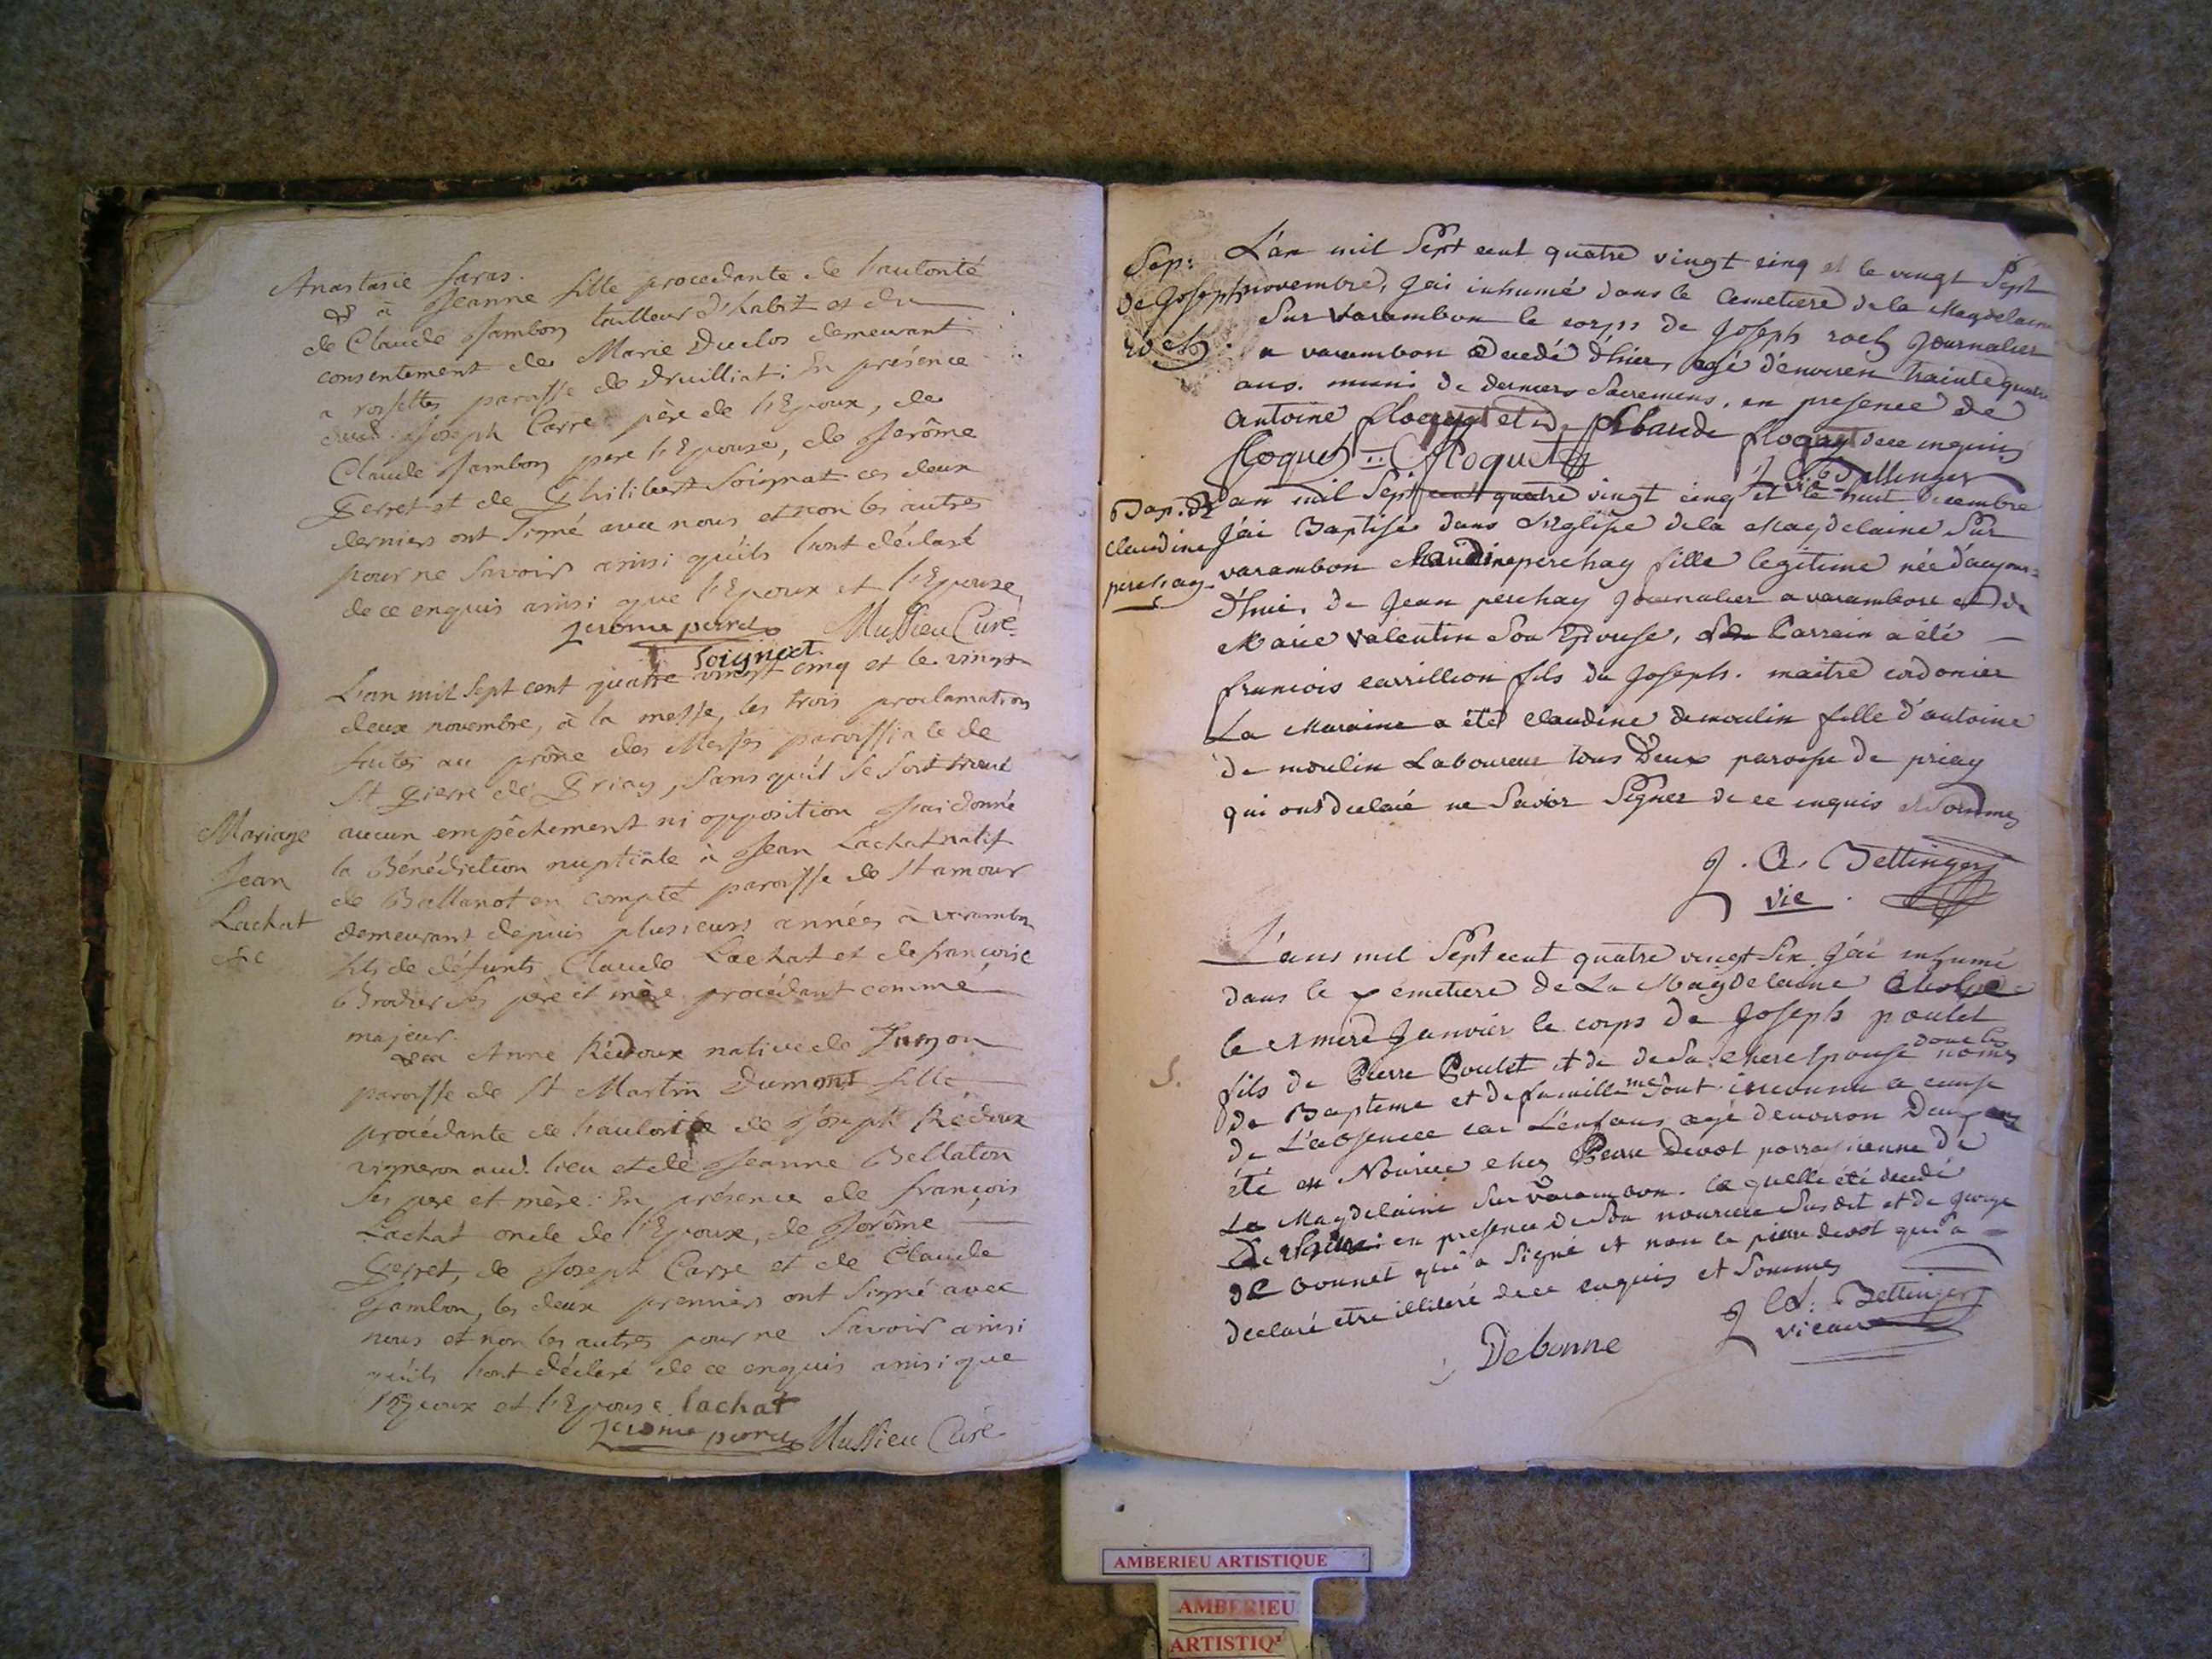 Anastasie Saras.
& à Jeanne fille procedante de l'autorité
de Claude Jambon tailleur d'habit et du
consentement de Marie Duclos demeurant
a rossettes paroisse de druilliat: En présence
dud. Joseph Carre père de l'Epoux, de
Claude Jambon pere l'Epouse, de Jerôme
Perret et de Philibert Soignat ces deux
derniers ont signé avec nous et non les autres
pour ne savoir ainsi qu'ils l'ont déclaré
de ce enquis ainsi que l'Epoux et l'Epouse,
jerome perret Mussieu Curé
Soignat
L'an mil sept cent quatre vingt cinq et le vingt
deux novembre, à la messe, les trois proclamations
faites au prône des Messes paroissiale de
St Pierre de Priay, sans qu'il se soit trouvé
aucun empêchement ni opposition J'ai donné
la Bénédiction nuptiale à Jean Lachat natif
de Ballanot en compté paroisse de St amour
demeurant depuis plusieurs années à varambon
fils de défunts Claude Lachat et de françoise
Brodier ses père et mère procédant comme
majeur.
Mariage
Jean
Lachat
&c
& a Anne Rédoux native de
paroisse de St Martin Dumont fille
procédante de l'autorité de Joseph Rédoux
vigneron aud. lieu et de Jeanne Bellaton
ses pere et mère: En présence de françois
Lachat oncle de l'Epoux, de Jérôme
Perret, de Joseph Carre et de Claude
Jambon, les deux premiers ont signé avec
nous et non les autres pour ne savoir ainsi
qu'ils l'ont déclaré de ce enquis ainsi que
l'Epoux et l'Epouse lachat
jerome perret Mussieu Curé
Sep:
de Joseph
roch
L'an mil sept cent quatre vingt cinq et le vingt sept
novembre, j'ai inhumé dans le Cemetiere de la Magdelaine
sur varambon le corps de Joseph roch Journalier
a varambon decedé d'hier, agé d'environ trainte quatre
ans. muni de derniers sacremens, en presence de
antoine floquet et de Claude floquet de ce enquis
floquet floquet
J A Bettinger
vic
Bap. de
Claudine
perchay
L'an mil sept cent quatre vingt cinq et le huit decembre
J'ai Baptisé dans l'Eglise de la Magdelaine sur
varambon Claudine perchay fille legitime née d'aujour=
d'hui, de Jean perchay Journalier a varambon et de
Marie valentin son Epouse, Parrain a été
francois carrillion fils de Joseph. maitre cordonier
La Maraine a été Claudine demoulin fille d'antoine
de moulin Laboureur tous Deux paroisse de priay
qui ont declaré ne savoir signer de ce enquis et sommes
J. A. Bettinger
vic.
S.
L'ans mil sept cent quatre vingt six J'ai inhumé
dans le cemetiere de La Magdelaine
le Janvier le corps de Joseph poulet
fils de Pierre Poulet et de de sa chere Epouse dont les noms
de Bapteme et de famille me sont inconnu a cause
de L'absence car L'enfans agé d'environ Deux ans
été en Nourice chez Pierre Devot parroisienne de
La Magdelaine sur varambon. la quelle été decedé
en presence de sa nourice susdit et de george
de bonnet qui a signé et non le pierre devot qui a
declaré etre illiteré de ce enquis et sommes
Debonne
J A: Bettinger
vicaire
AMBERIEU ARTISTIQUE
AMBERIEU
ARTISTIQ